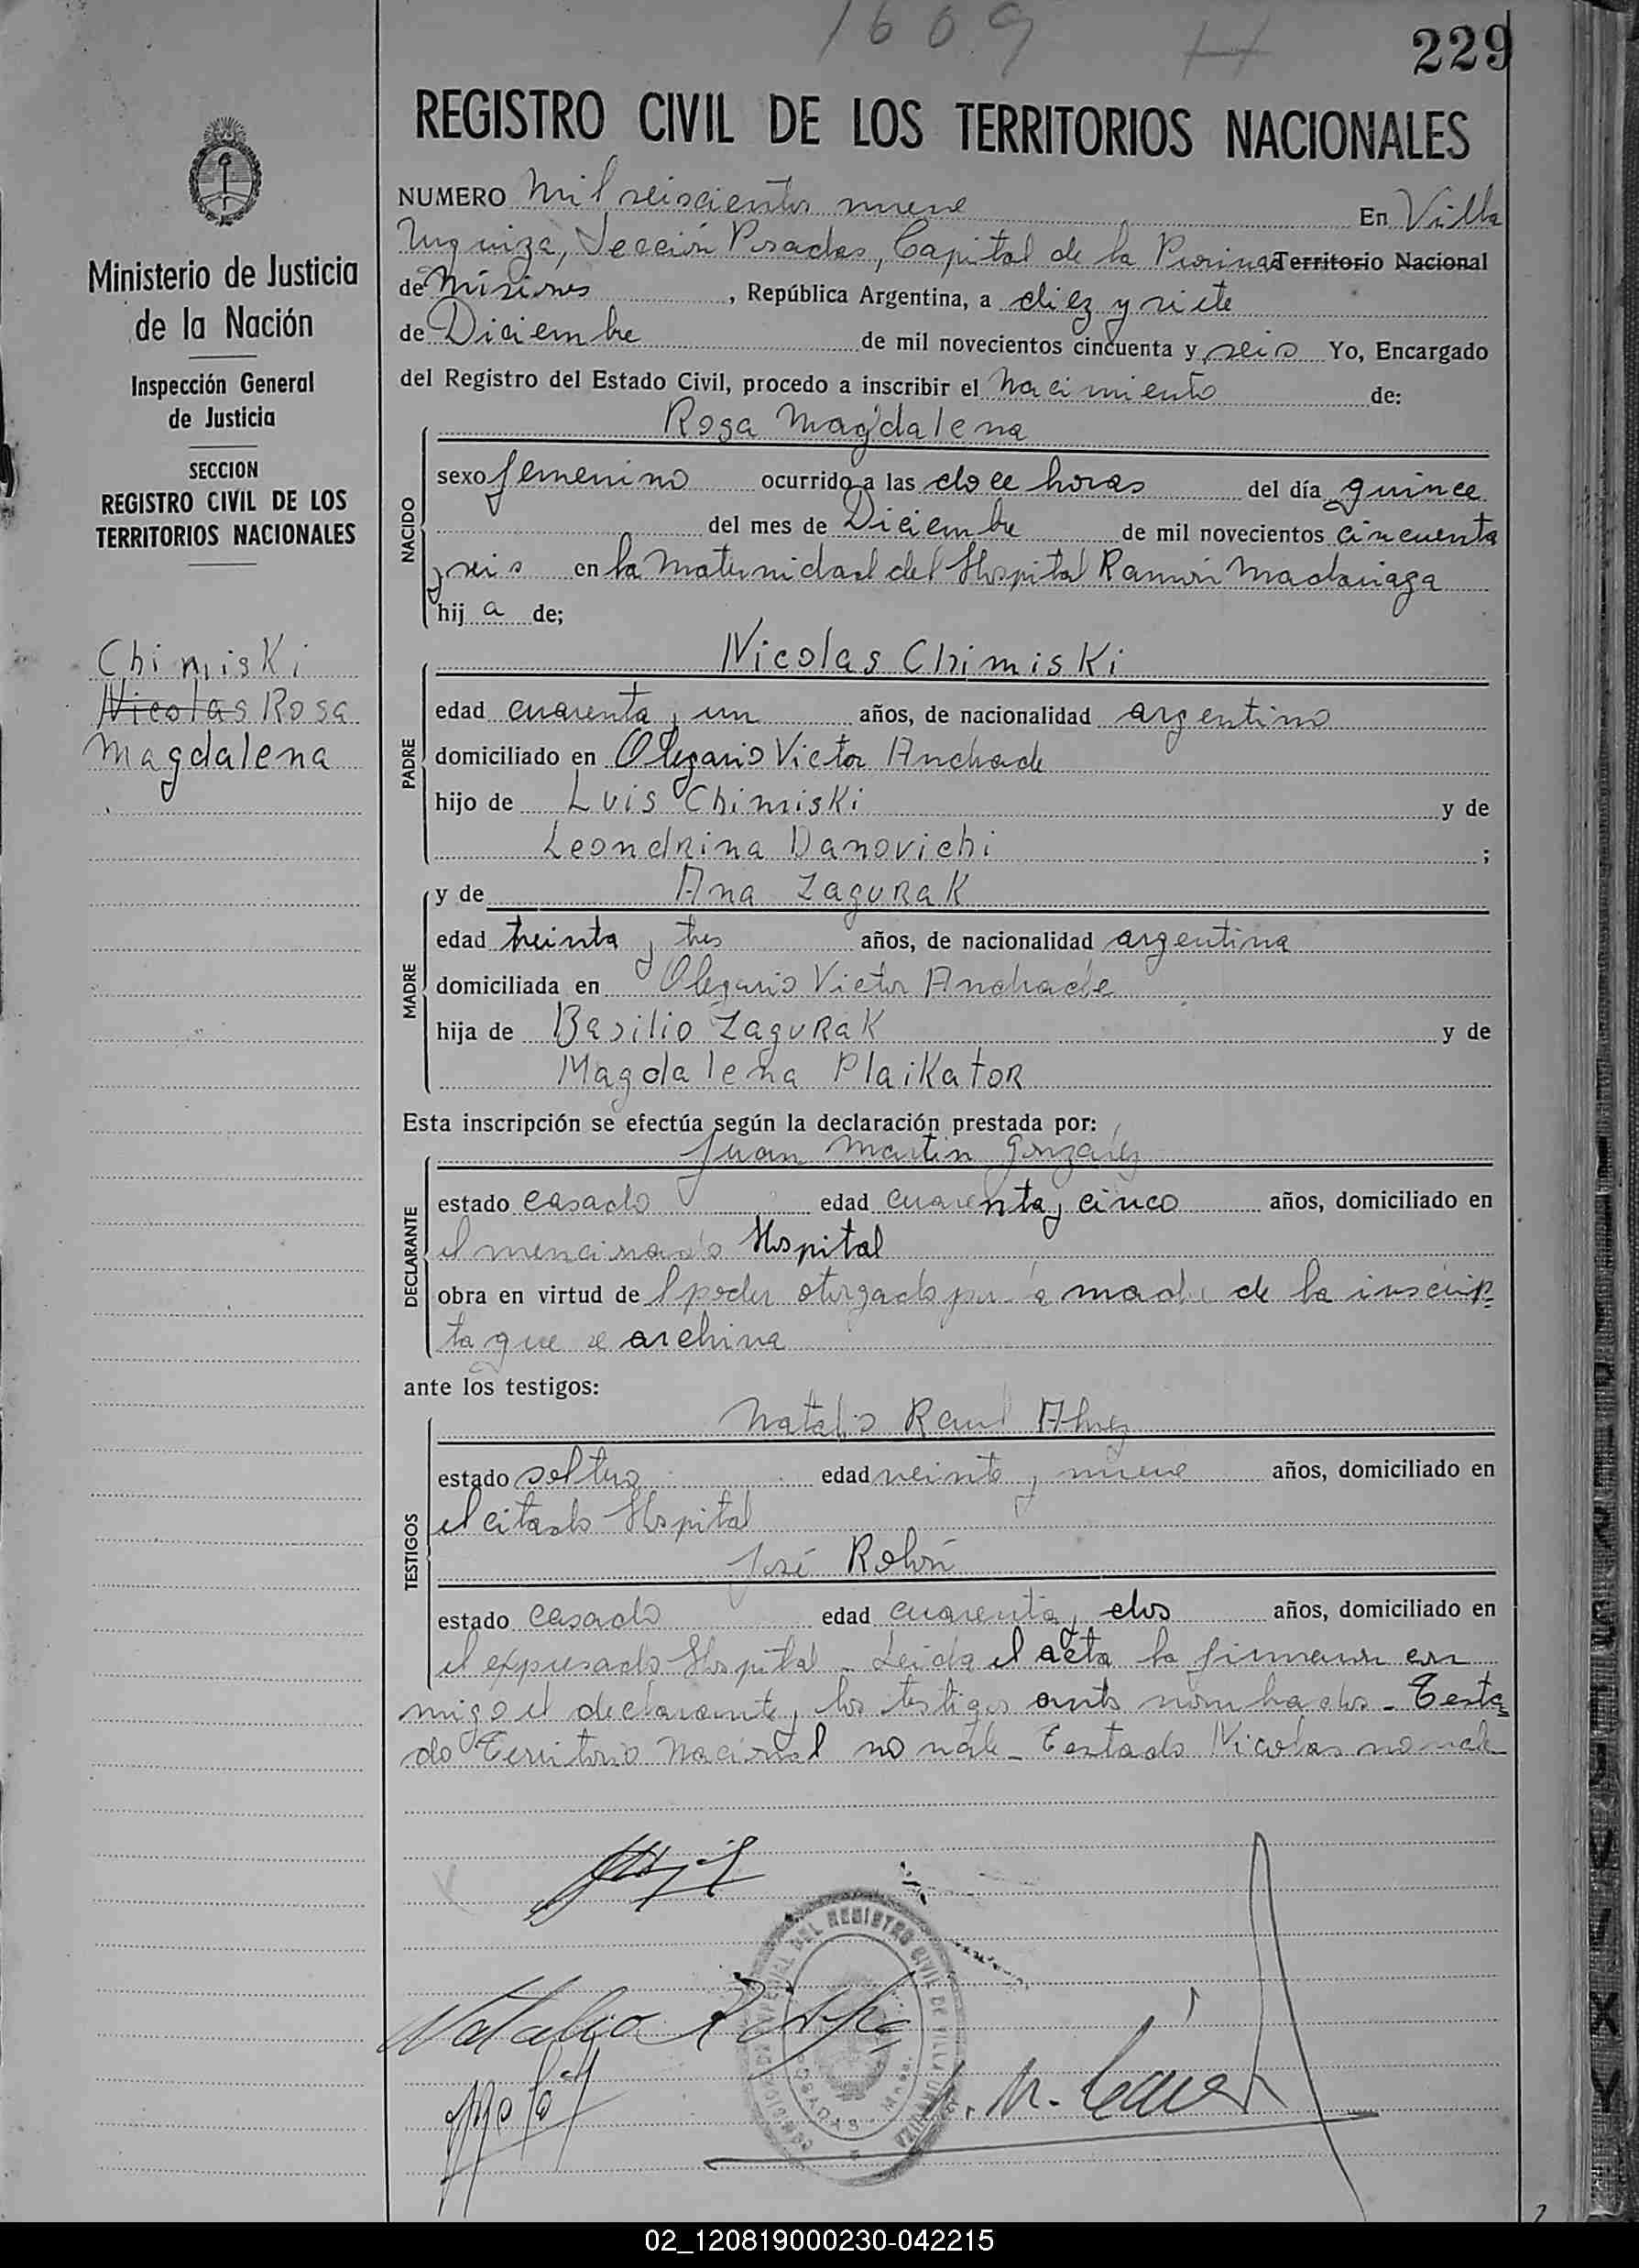 1609
229
REGISTRO CIVIL DE LOS TERRITORIOS NACIONALES
NUMERO Mil seiscientos nueve En Villa
Urquiza, Sección Posadas, Capital de la Provincia Territorio Nacional
de Misiones, República Argentina, a diez y siete
de Diciembre de mil novecientos cincuenta y seis Yo, Encargado
del Registro del Estado Civil, procedo a inscribir el Nacimiento de:
Ministerio de Justicia
de la Nación
Inspección General
de Justicia
SECCION
REGISTRO CIVIL DE LOS
TERRITORIOS NACIONALES
Chimiski
Nicolas Rosa
Magdalena
NACIDO
Rosa Magdalena
sexo femenino ocurrido a las doce horas del día quince
del mes de Diciembre de mil novecientos cincuenta
y seis en la Maternidad del Hospital Ramón Madariaga
hij a de;
PADRE
Nicolas Chimiski
edad cuarenta y un años, de nacionalidad argentino
domiciliado en Olegario Victor Andrade
hijo de Luis Chimiski y de
Leondrina Danovichi ;
MADRE
y de Ana Zagurak
edad treinta y tres años, de nacionalidad argentina
domiciliada en Olegario Victor Andrade
hija de Basilio Zagurak y de
Magdalena Plaikator
Esta inscripción se efectúa según la declaración prestada por:
DECLARANTE
Juan Martin Gonzalez
estado casado edad cuarenta y cinco años, domiciliado en
el mencionado Hospital
obra en virtud de l poder otorgado por la madre de la inscrip-
ta que se archiva
ante los testigos:
TESTIGOS
Natalio Raul
estado soltero edad veinte y nueve años, domiciliado en
el citado Hospital
José Rolón
estado casado edad cuarenta y dos años, domiciliado en
el expresado Hospital - Leida el acta la firmaron con
migo el declarante y los testigos antes nombrados - Testa
do Territorio Nacional no vale - Testado Nicolas no vale
DEL REGISTRO CIVIL DE VILLA URQUIZA
POSADAS
02_120819000230-042215